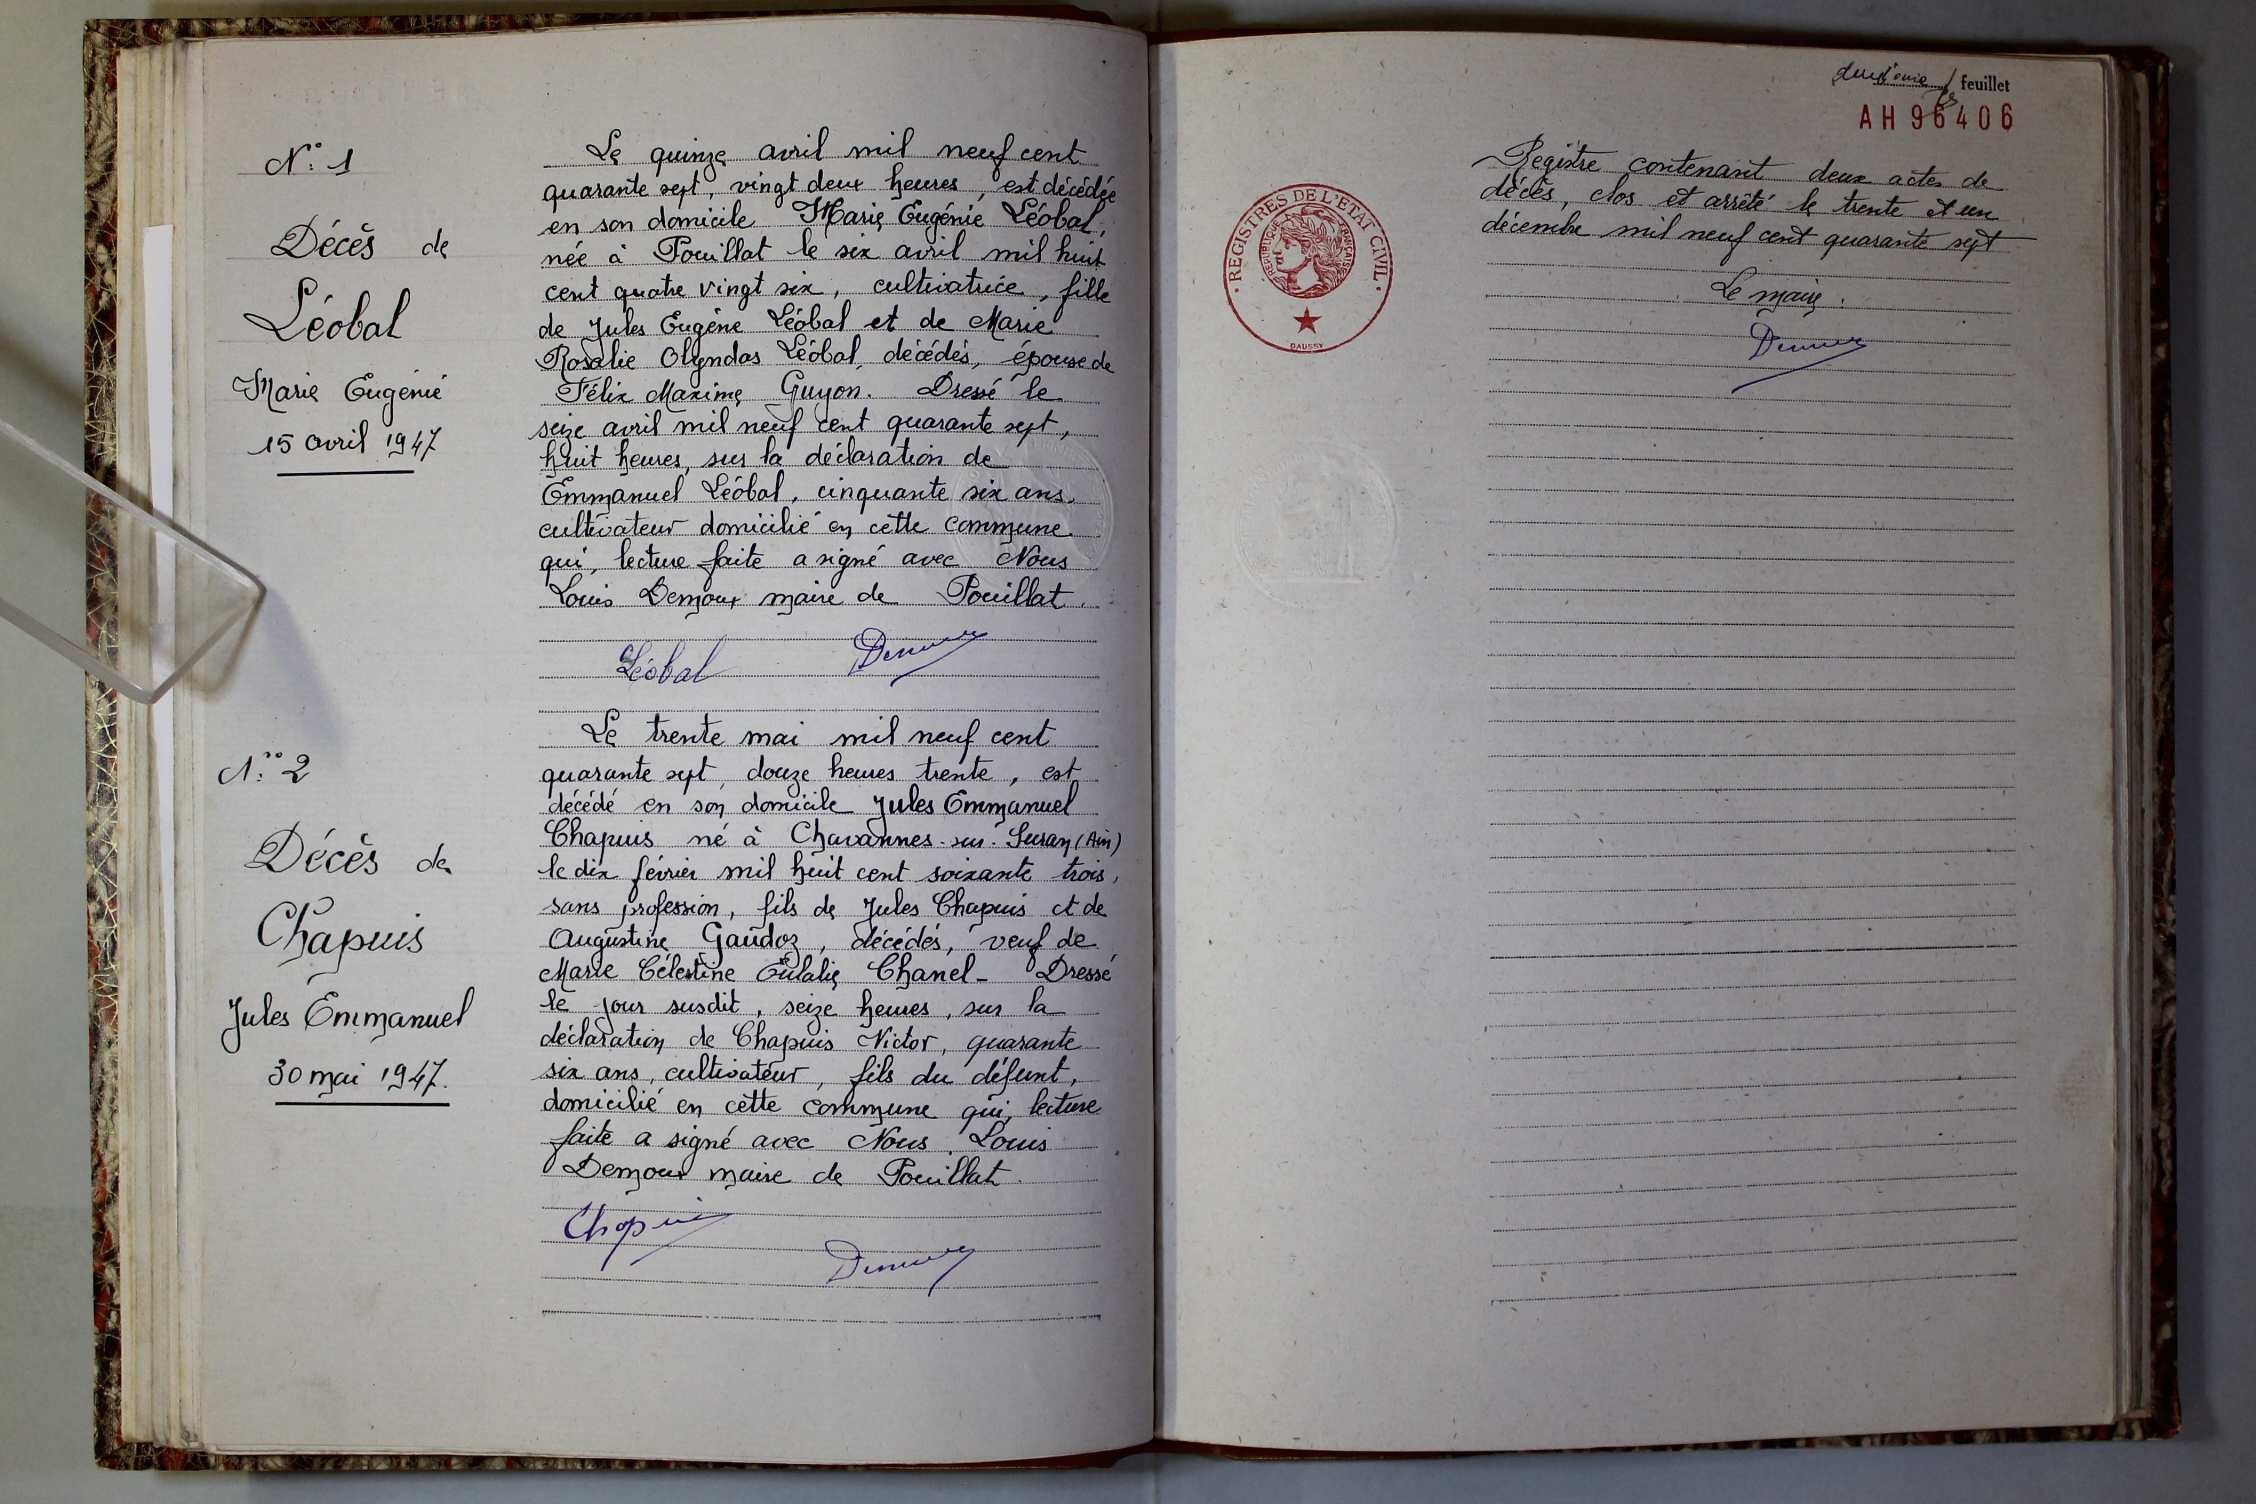 N° 1
Décès de
Léobal
Marie Eugénie
15 avril 1947
Le quinze avril mil neuf cent
quarante sept, vingt deux heures, est décédée
en son domicile Marie Eugénie Léobal,
née à Pouillat le six avril mil huit
cent quatre vingt six, cultivatrice, fille
de Jules Eugène Léobal et de Marie
Rosalie Olyndas Léobal, décédés, épouse de
Félix Maxime Guyon. Dressé le
seize avril mil neuf cent quarante sept,
huit heures, sur la déclaration de
Emmanuel Léobal, cinquante six ans,
cultivateur domicilié en cette commune
qui, lecture faite a signé avec Nous
Louis Demoux maire de Pouillat.
Léobal
N° 2
Décès de
Chapuis
Jules Emmanuel
30 mai 1947.
Le trente mai mil neuf cent
quarante sept, douze heures trente, est
décédé en son domicile Jules Emmanuel
Chapuis né à Chavannes-sur-Suran (Ain)
le dix février mil huit cent soixante trois,
sans profession, fils de Jules Chapuis et de
Augustine Gaudoz, décédés, veuf de
Marie Célestine Eulalie Chanel - Dressé
le jour susdit, seize heures, sur la
déclaration de Chapuis Victor, quarante
six ans, cultivateur, fils du défunt,
domicilié en cette commune qui, lecture
faite a signé avec Nous, Louis
Demoux maire de Pouillat.
Chapuis
feuillet
AH 96406
REGISTRES DE L'ETAT CIVIL
REPUBLIQUE FRANÇAISE
DAUSSY
Registre contenant deux actes de
décès, clos et arrêté le trente et un
décembre mil neuf cent quarante sept
Le maire.